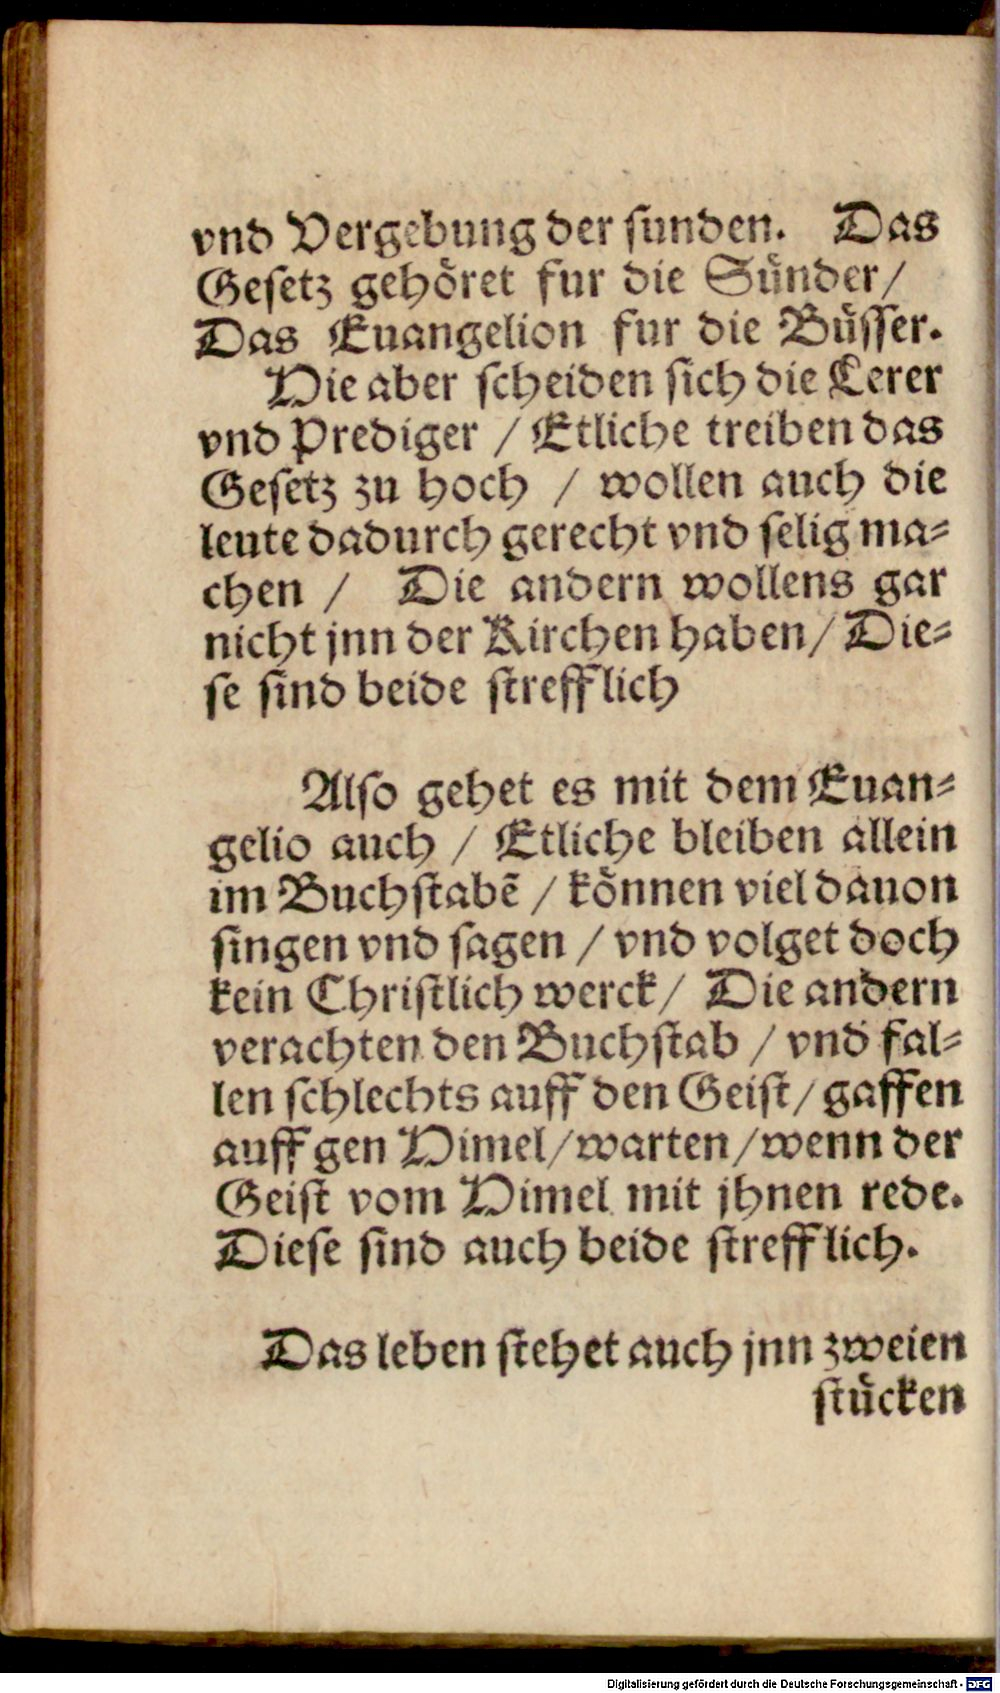 vnd Vergebung der ſunden. Das
Geſetz gehoͤret fur die Suͤnder/
Das Euangelion fur die Buͤſſer.
Hie aber ſcheiden ſich die Lerer
vnd Prediger / Etliche treiben das
Geſetz zu hoch / wollen auch die
leute dadurch gerecht vnd ſelig ma⸗
chen / Die andern wollens gar
nicht jnn der Kirchen haben/ Die⸗
ſe ſind beide ſtrefflich
Alſo gehet es mit dem Euan⸗
gelio auch / Etliche bleiben allein
im Buchſtabẽ / koͤnnen viel dauon
ſingen vnd ſagen / vnd volget doch
kein Chriſtlich werck/ Die andern
verachten den Buchſtab / vnd fal⸗
len ſchlechts auff den Geiſt/ gaffen
auff gen Himel/warten/wenn der
Geiſt vom Himel mit jhnen rede.
Dieſe ſind auch beide ſtrefflich.
Das leben ſtehet auch jnn zweien
ſtuͤcken
Digitalisierung gefördert durch die Deutsche Forschungsgemeinschaft - DFG